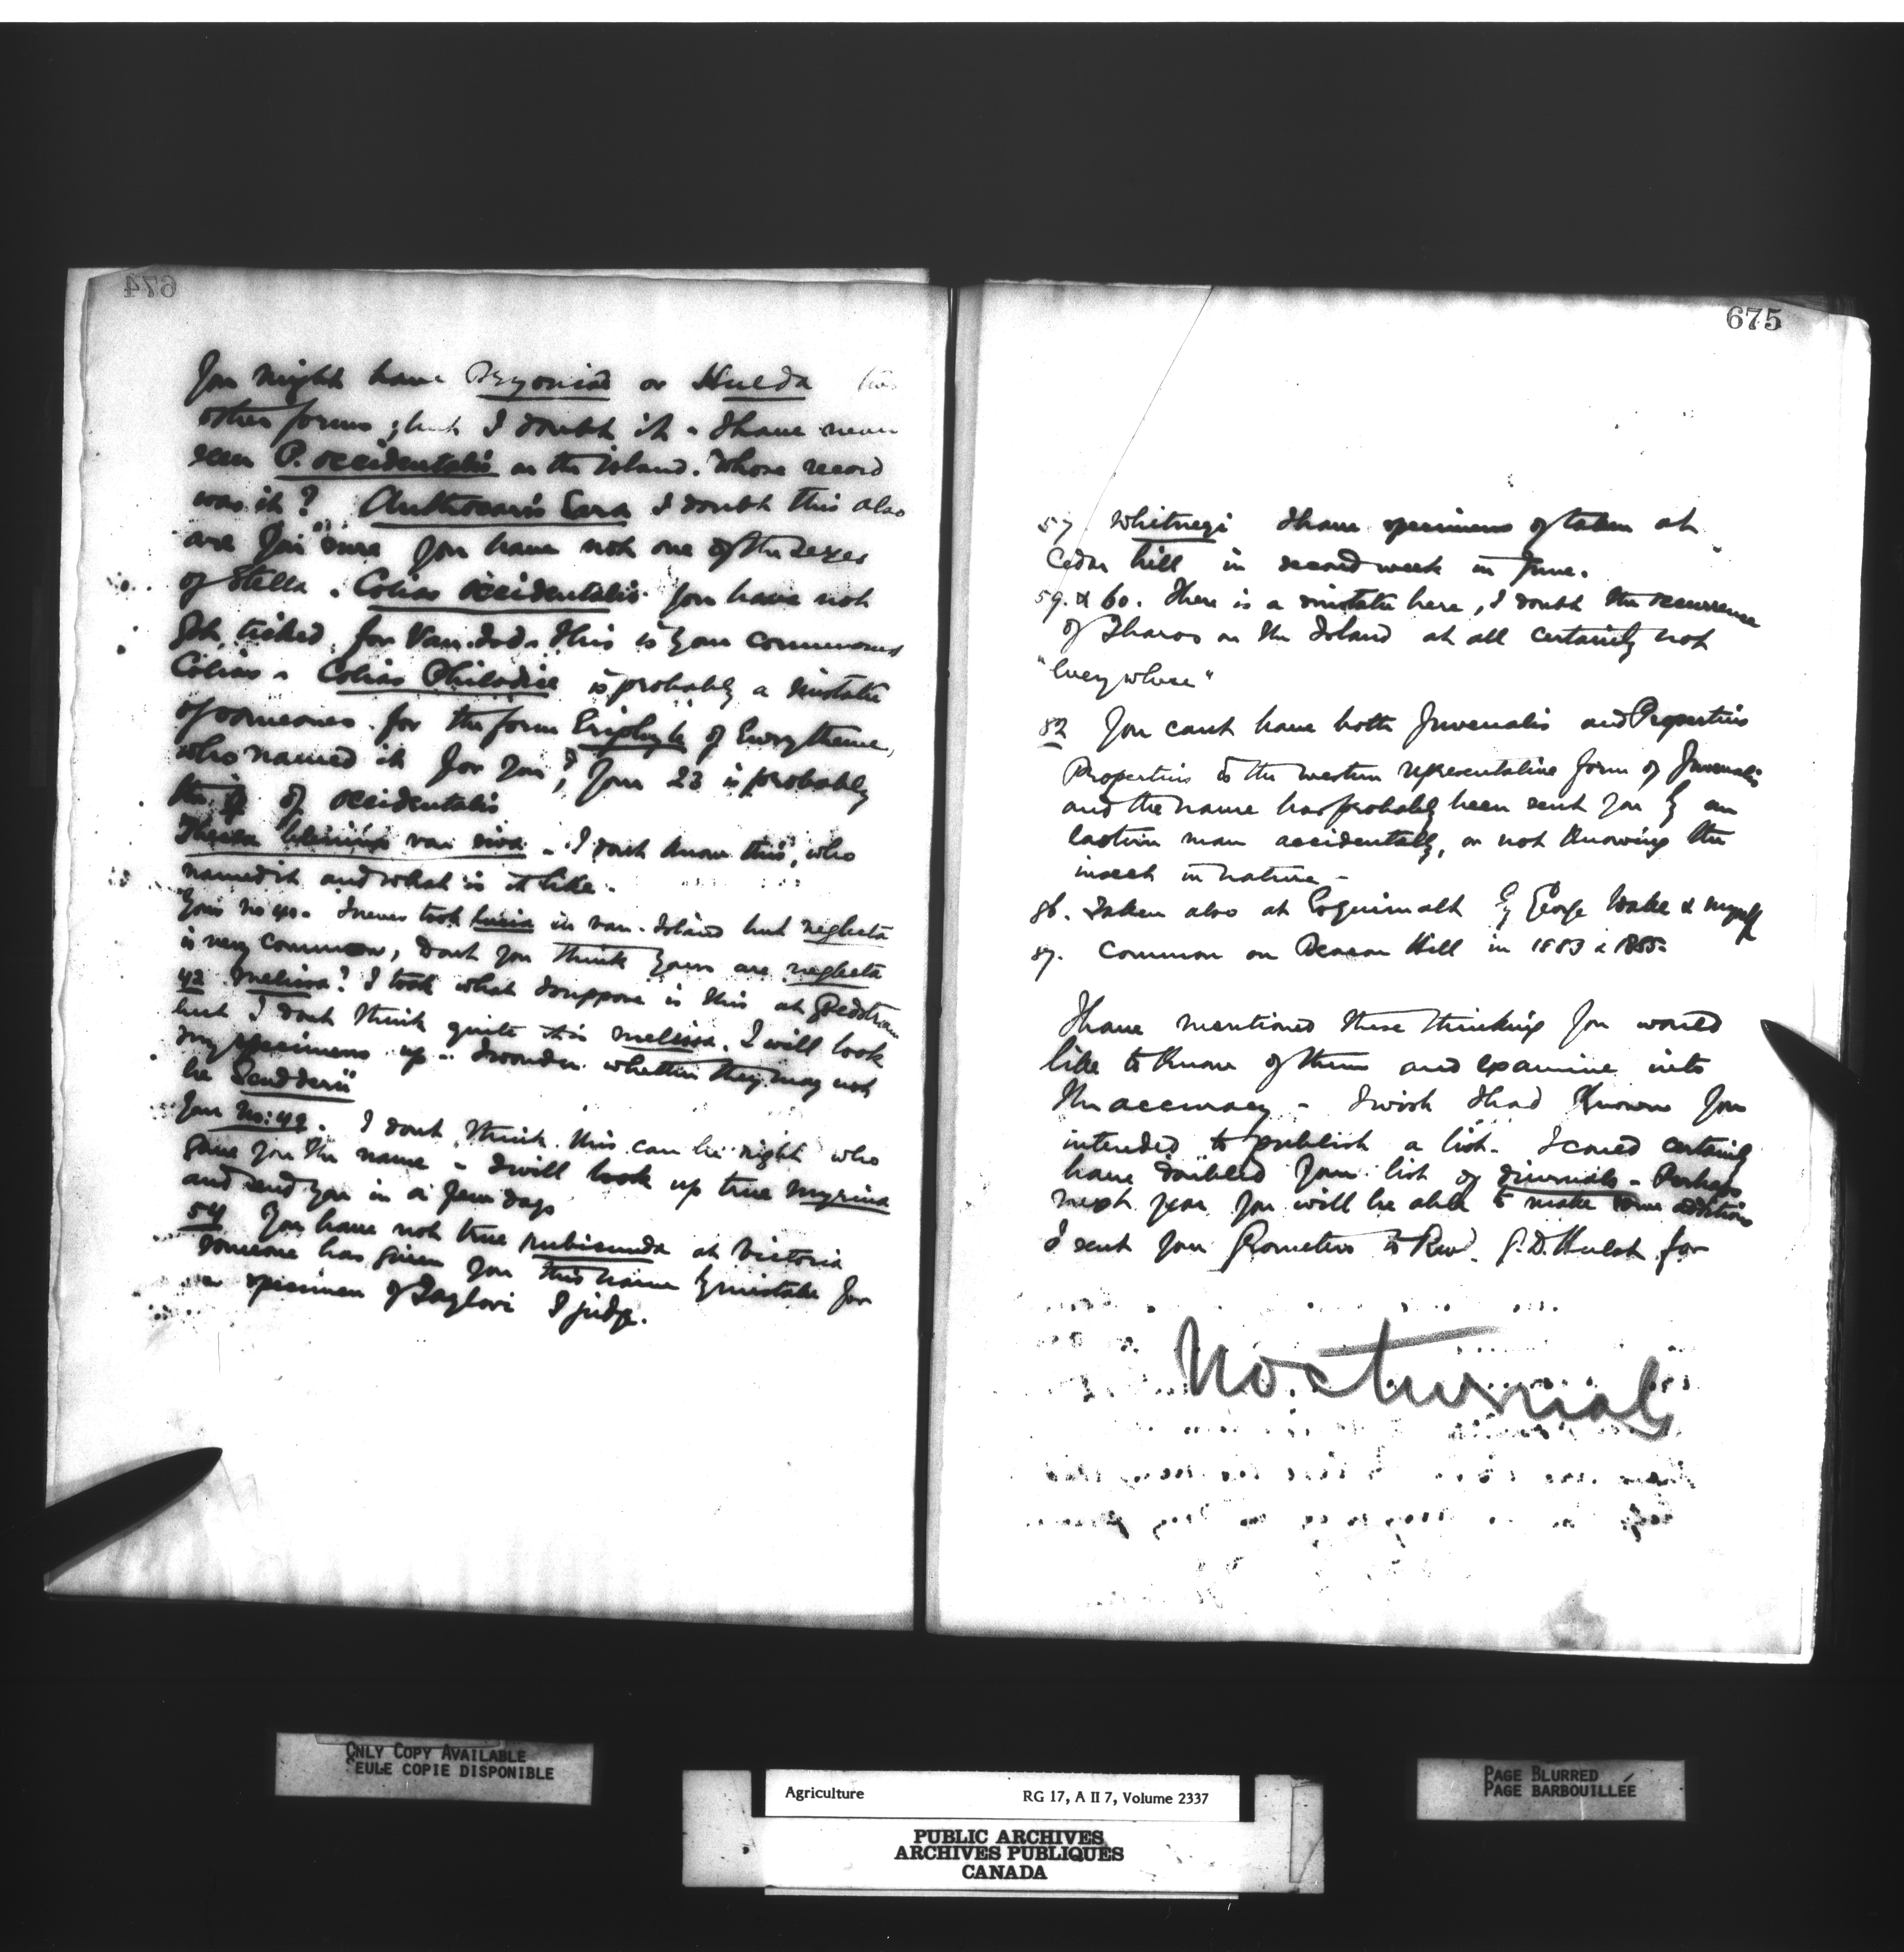 674
You might have Bryoniae or Hulda two
other forms; but I doubt it. I have never
seen P. occidentalis on the island. Whose record
was it? Anthocaris Sara I doubt this also
are you sure you have not one of the sexes
of Stella. Colias occidentalis you have not
got ticked for Van. Isd. This is your commonest
Colias. Colias Philodice is probably a mistake
of someones for the form Eriphyle of Eurytheme,
who named it for you? Your 23 is probably
the ♀ of occidentalis
Thecla var viva. I dont know this, who
named it and what is it like.
Your no 40. I never took lucia in van. Island but neglecta
is very common, dont you think yours are neglecta
42 melissa? I took what I suppose is this at Goldstream
but I dont think quite this melissa. I will look
my specimens up. I wonder whether they may not
be Scudderii
Your No: 49. I dont think this can be right who
gave you the name. I will look up true myrina
and send you in a few days
54 You have not true rubicunda at Victoria
someone has given you this name by mistake for
a specimen of Taylori I judge.
675
57. Whitneyi I have specimens of taken at
Cedar hill in second week in June.
59. & 60. There is a mistake here, I doubt the occurrence
of Tharos on the Island at all certainly not
"Everywhere"
82 You cant have both Juvenalis and Propertius
Propertius is the western representative form of Juvenalis
and the name has probably been sent you by an
Eastern man accidentally, or not knowing the
insect in nature -
86. Taken also at Esquimalt by George Wake & myself
87. Common on Beacon Hill in 1883 & 1885.
I have mentioned these thinking you would
like to know of them and examine into
the accuracy - I wish I had known you
intended to publish a list. I could certainly
have doubled your list of diurnals - Perhaps
next year you will be able to make some additions
I sent your Geometers to Revd. G. D. Hulst for
Nocturnals
ONLY COPY AVAILABLE
SEULE COPIE DISPONIBLE
Agriculture RG 17, A II 7, Volume 2337
PUBLIC ARCHIVES
ARCHIVES PUBLIQUES
CANADA
PAGE BLURRED
PAGE BARBOUILLÉE